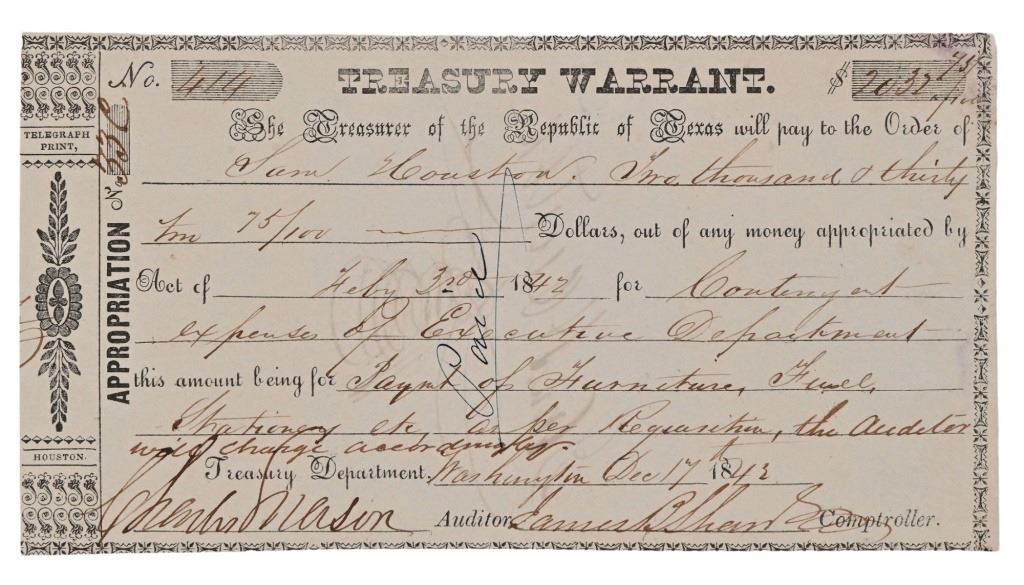 No. 414 TREASURY WARRANT. $2032 75/100
The Treasurer of the Republic of Texas will pay to the Order of
Sam Houston. Two thousand & thirty
75/100 Dollars, out of any money appropriated by
Act of Feby 3rd 1842 for Contengent
expenses of Executive Department
this amount being for Paymt of Furniture, Fuel,
Stationery etc as per Requisition, the Auditor
will charge accordingly.
Treasury Department, Washington Dec 17th 1842
Auditor James B Shaw Comptroller.
Paid
APPROPRIATION No
TELEGRAPH
PRINT,
HOUSTON.